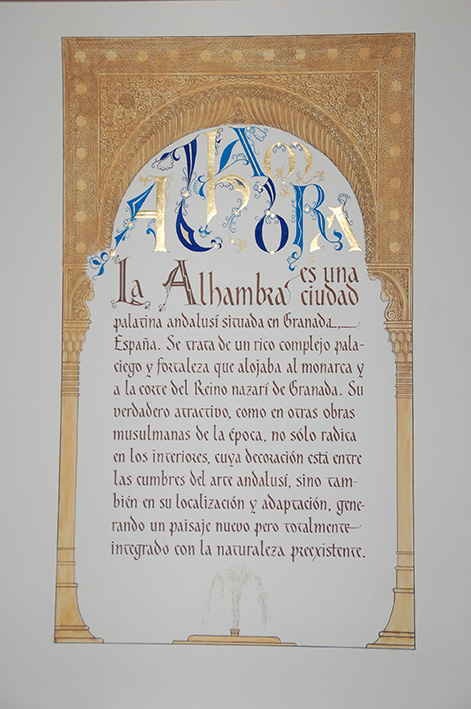 ALHAMBRA
La Alhambra es una
ciudad
palatina andalusí situada en Granada,
España. Se trata de un rico complejo pala-
ciego y fortaleza que alojaba al monarca y
a la corte del Reino nazarí de Granada. Su
verdadero atractivo, como en otras obras
musulmanas de la época, no sólo radica
en los interiores, cuya decoración está entre
las cumbres del arte andalusí, sino tam-
bién en su localización y adaptación, gene-
rando un paisaje nuevo pero totalmente
integrado con la naturaleza preexistente.